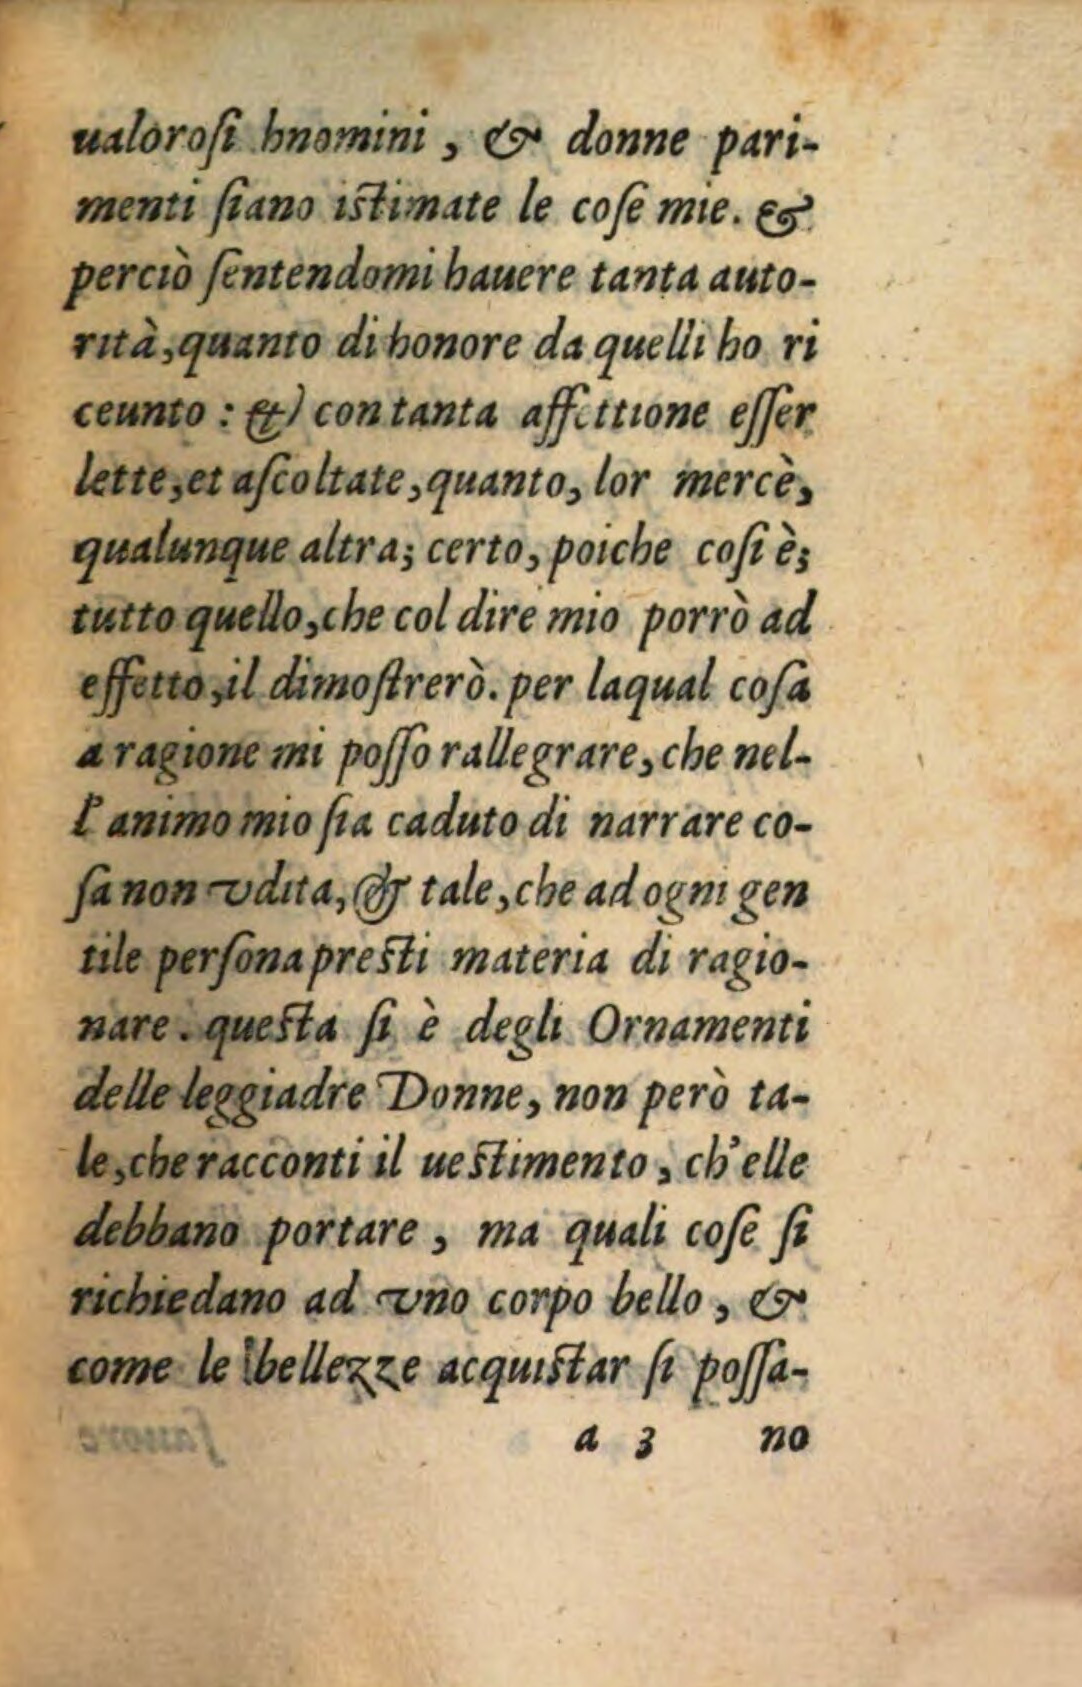 ualoroſi hnomini, & donne pari-
menti ſiano iſtimate le coſe mie. &
perciò ſentendomi hauere tanta auto-
rità, quanto di honore da quelli ho ri
ceunto: & con tanta affettione eſſer
lette, et aſcoltate, quanto, lor mercè,
qualunque altra; certo, poiche coſi è;
tutto quello, che col dire mio porrò ad
effetto, il dimoſtrerò. per laqual coſa
a ragione mi poſſo rallegrare, che nel-
l'animo mio ſia caduto di narrare co-
ſa non vdita, & tale, che ad ogni gen
tile perſona preſti materia di ragio-
nare. queſta ſi è degli Ornamenti
delle leggiadre Donne, non però ta-
le, che racconti il ueſtimento, ch'elle
debbano portare, ma quali coſe ſi
richiedano ad vno corpo bello, &
come le bellezze acquiſtar ſi poſſa-
a 3 no